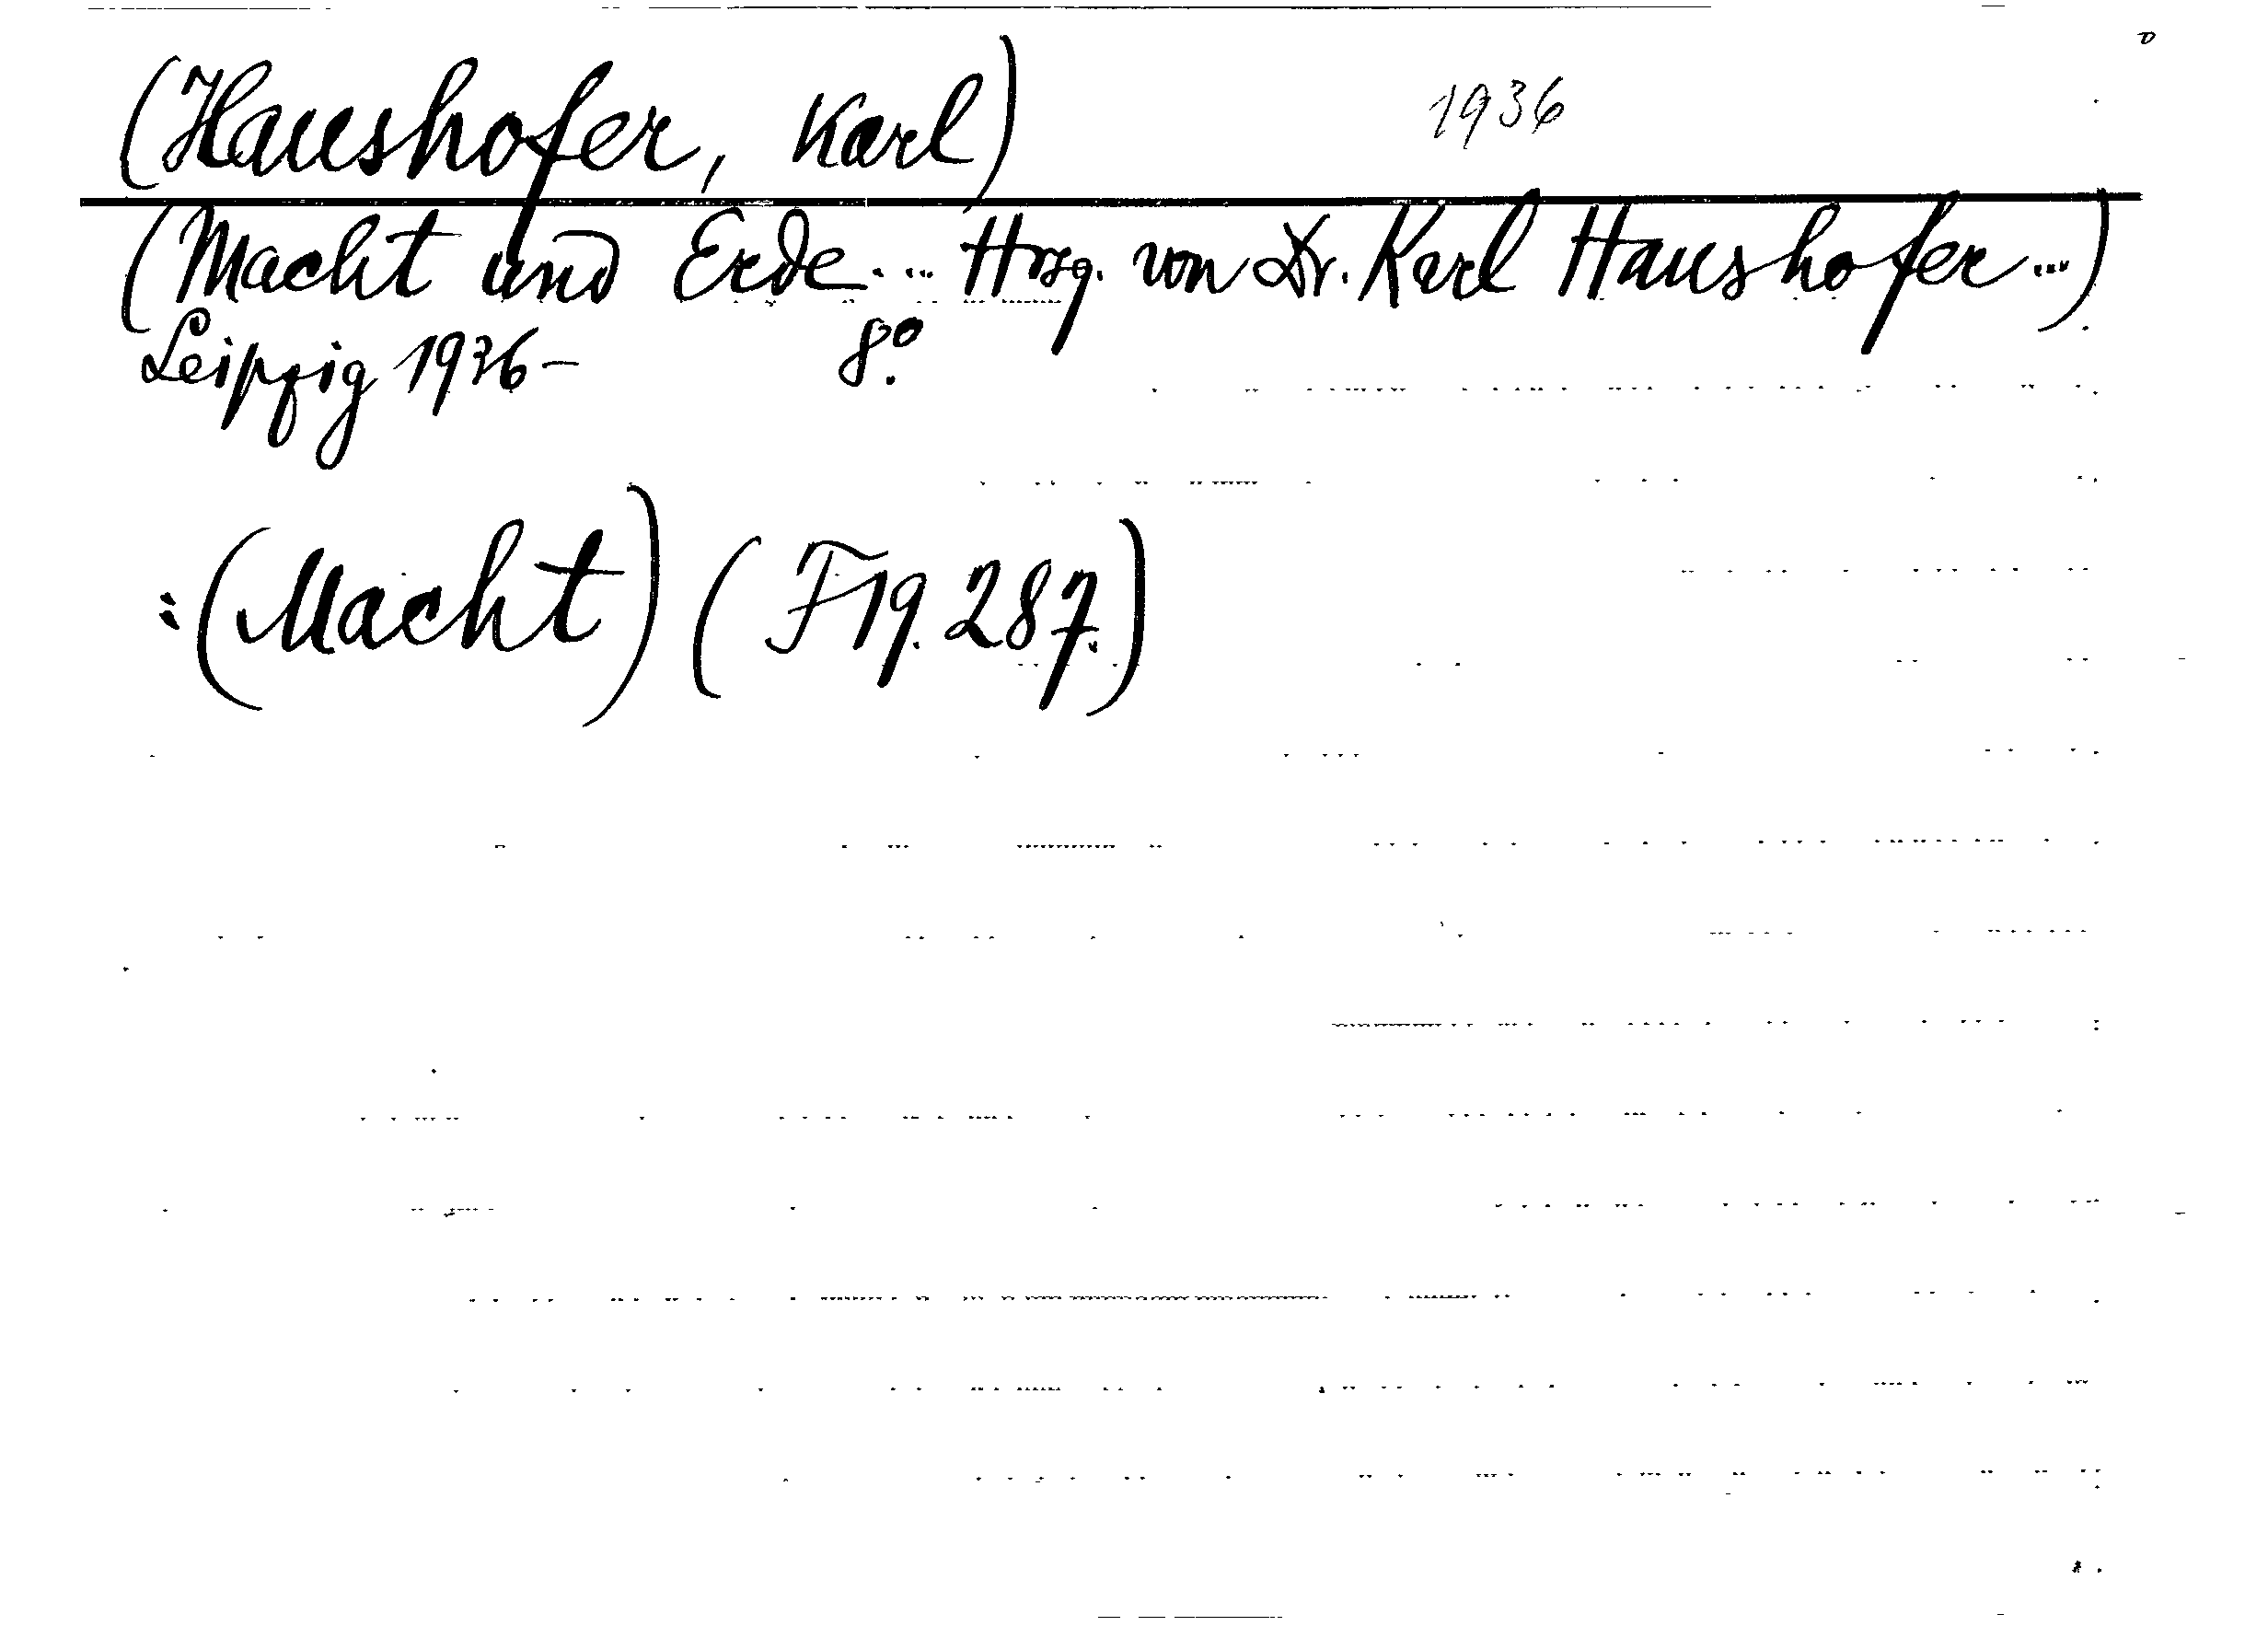 (Haushofer, Karl) 1936
(Macht und Erde... Hrsg. von Dr. Karl Haushofer...)
Leipzig 1936- 8°.
:(Macht) (F19.287.)